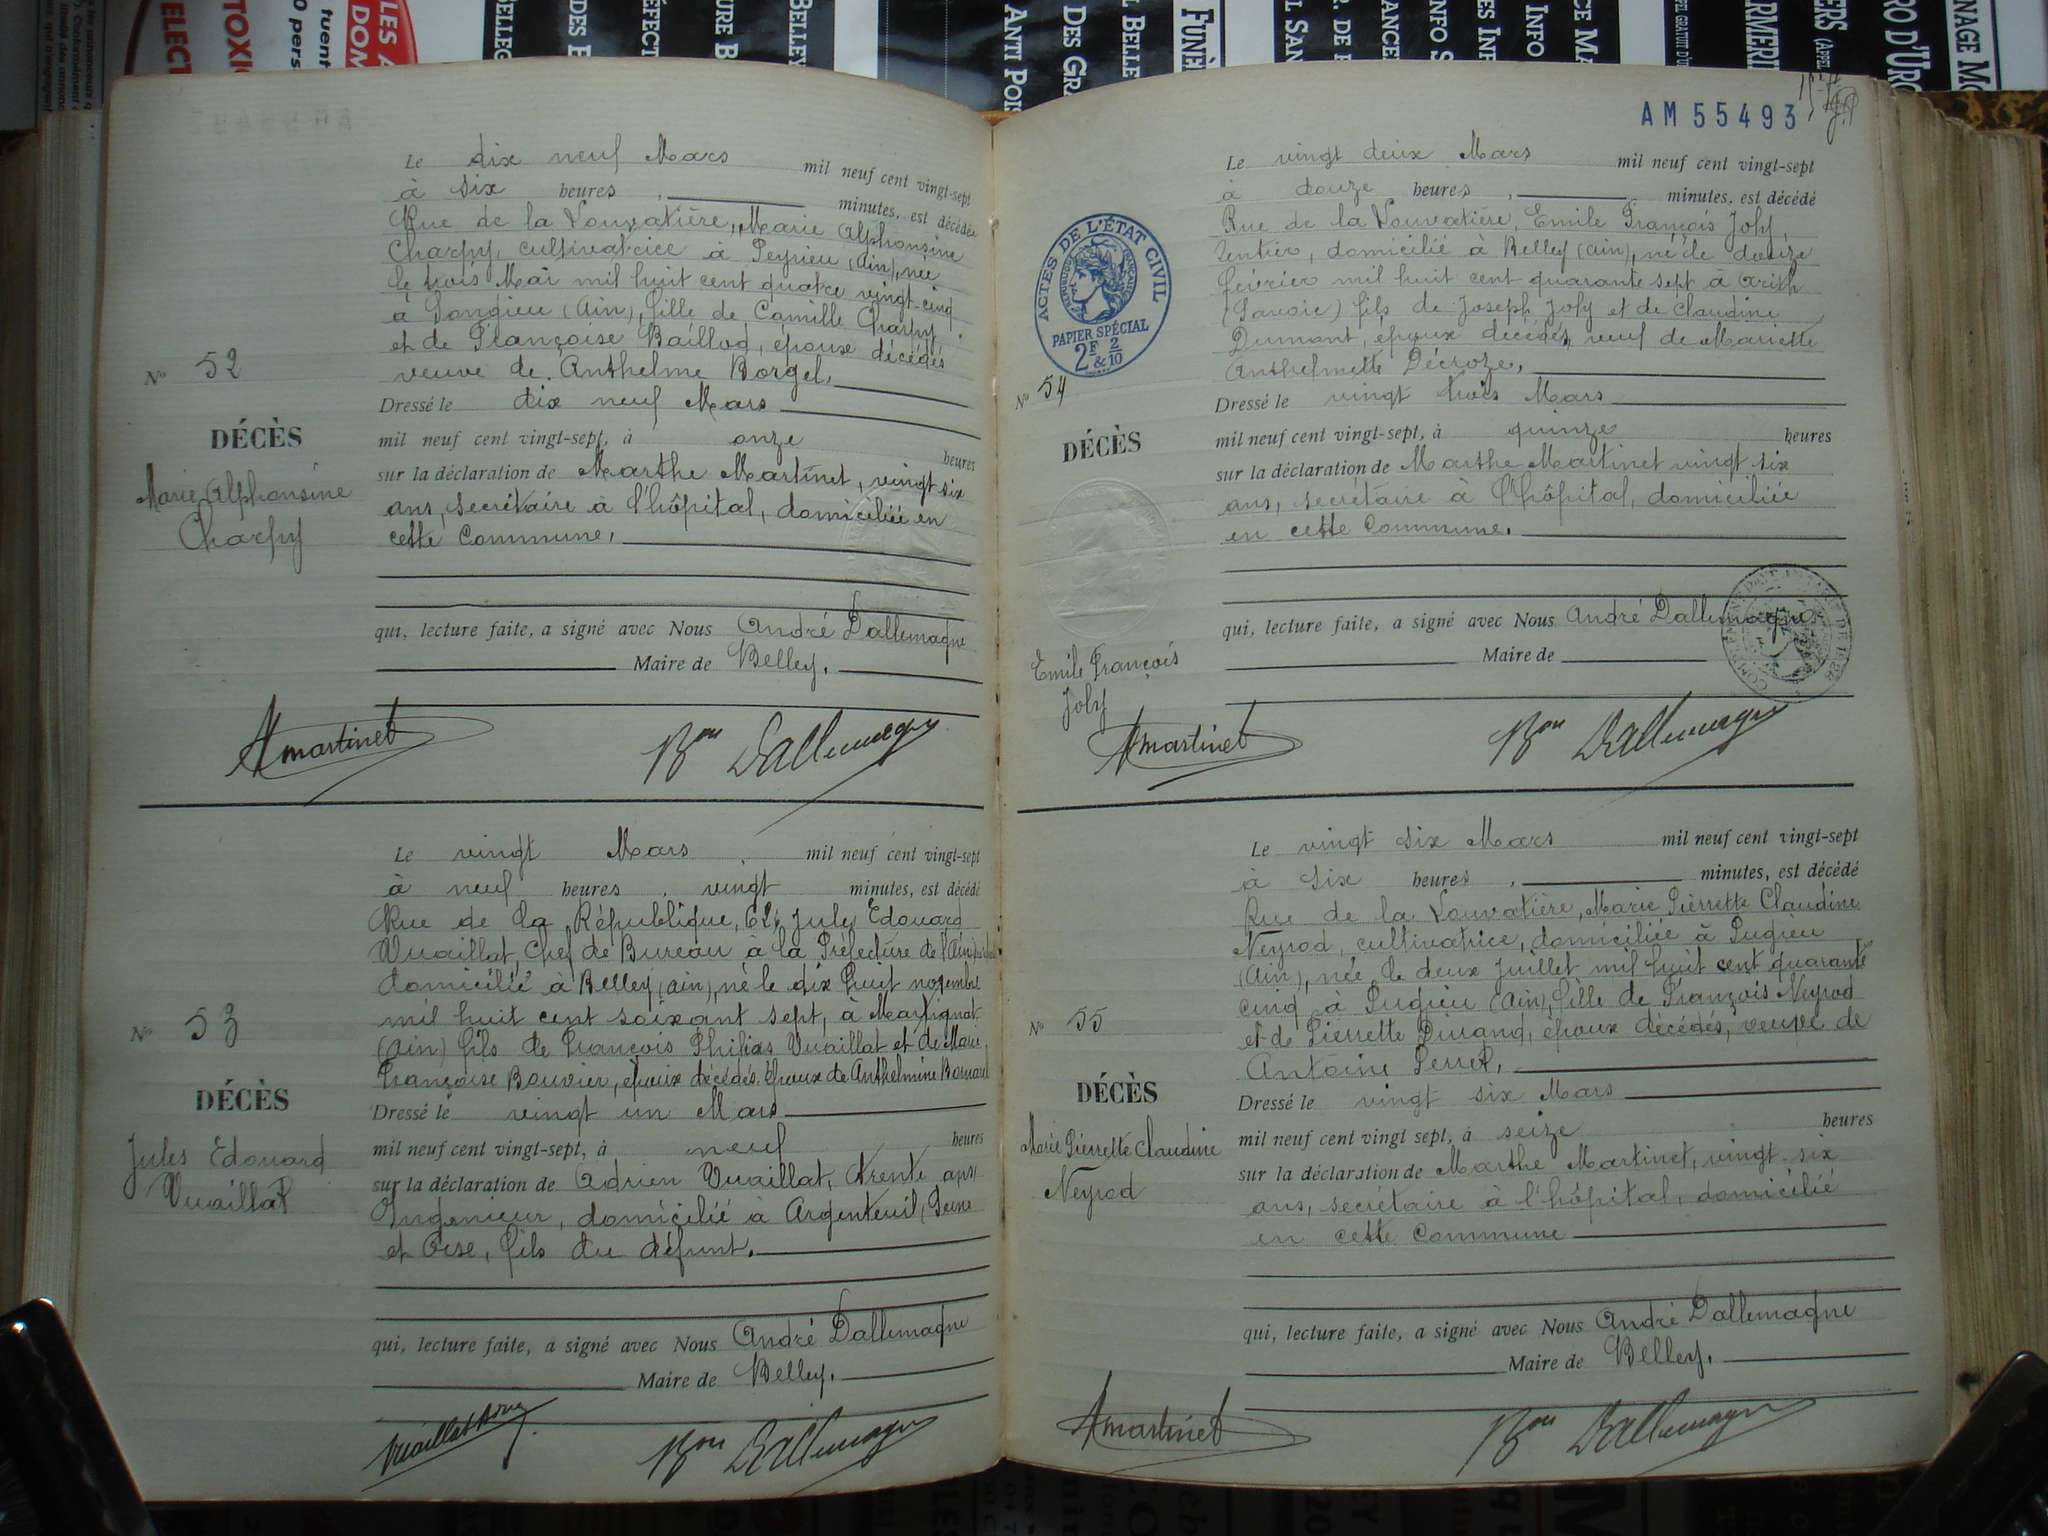 AM 55493
Le dix neuf Mars mil neuf cent vingt-sept
à six heures, minutes, est décédée
Rue de la Louvatière, Marie Alphonsine
Charpy, cultivatrice à Peyrieu (Ain), née
le trois Mai mil huit cent quatre vingt cinq
à Songieu (Ain), fille de Camille Charpy,
et de Françoise Baillod, époux décédés
veuve de Anthelme Borgel.
Dressé le dix neuf Mars
mil neuf cent vingt-sept, à onze heures
sur la déclaration de Marthe Martinet, vingt six
ans, secrétaire à l'hôpital, domiciliée en
cette Commune.
qui, lecture faite, a signé avec Nous André Dallemagne
Maire de Belley.
No 52
DÉCÈS
Marie Alphonsine
Charpy
AMartinet
Bon Dallemagne
Le vingt Mars mil neuf cent vingt-sept
à neuf heures, vingt minutes, est décédé
Rue de la République, 62, Jules Edouard
Vuaillat, Chef de Bureau à la Préfecture de l'Ain
domicilié à Belley (Ain), né le dix huit novembre
mil huit cent soixant sept, à Martignat
(Ain) fils de François Philias Vuaillat et de Marie
Françoise Bouvier, époux décédés. Époux de Anthelmine
Dressé le vingt un Mars
mil neuf cent vingt-sept, à neuf heures
sur la déclaration de Adrien Vuaillat, trente ans
Ingénieur, domicilié à Argenteuil, Seine
et Oise, fils du défunt.
qui, lecture faite, a signé avec Nous André Dallemagne
Maire de Belley.
No 53
DÉCÈS
Jules Edouard
Vuaillat
Bon Dallemagne
Le vingt deux Mars mil neuf cent vingt-sept
à douze heures, minutes, est décédé
Rue de la Louvatière, Emile François Joly,
rentier, domicilié à Belley (Ain), né le douze
février mil huit cent quarante sept à Arith
(Savoie) fils de Joseph Joly et de Claudine
Dumont, époux décédés, veuf de Mariette
Anthelmette Décroze.
Dressé le vingt trois Mars
mil neuf cent vingt-sept, à quinze heures
sur la déclaration de Marthe Martinet vingt six
ans, secrétaire à l'hôpital, domiciliée
en cette Commune.
qui, lecture faite, a signé avec Nous André Dallemagne
Maire de
ACTES DE L'ÉTAT CIVIL
RÉPUBLIQUE FRANÇAISE
PAPIER SPÉCIAL
2F & 2/10
No 54
DÉCÈS
Emile François
Joly
AMartinet
Bon Dallemagne
Le vingt six Mars mil neuf cent vingt-sept
à six heures, minutes, est décédé
Rue de la Louvatière, Marie Pierrette Claudine
Neyrod, cultivatrice, domiciliée à Pugieu
(Ain), née le deux Juillet mil huit cent quarante
cinq à Pugieu (Ain), fille de François Neyrod
et de Pierrette Durand, époux décédés, veuve de
Antoine Perret.
Dressé le vingt six Mars
mil neuf cent vingt sept, à seize heures
sur la déclaration de Marthe Martinet, vingt six
ans, secrétaire à l'hôpital, domicilié
en cette Commune
qui, lecture faite, a signé avec Nous André Dallemagne
Maire de Belley.
No 55
DÉCÈS
Marie Pierrette Claudine
Neyrod
AMartinet
Bon Dallemagne